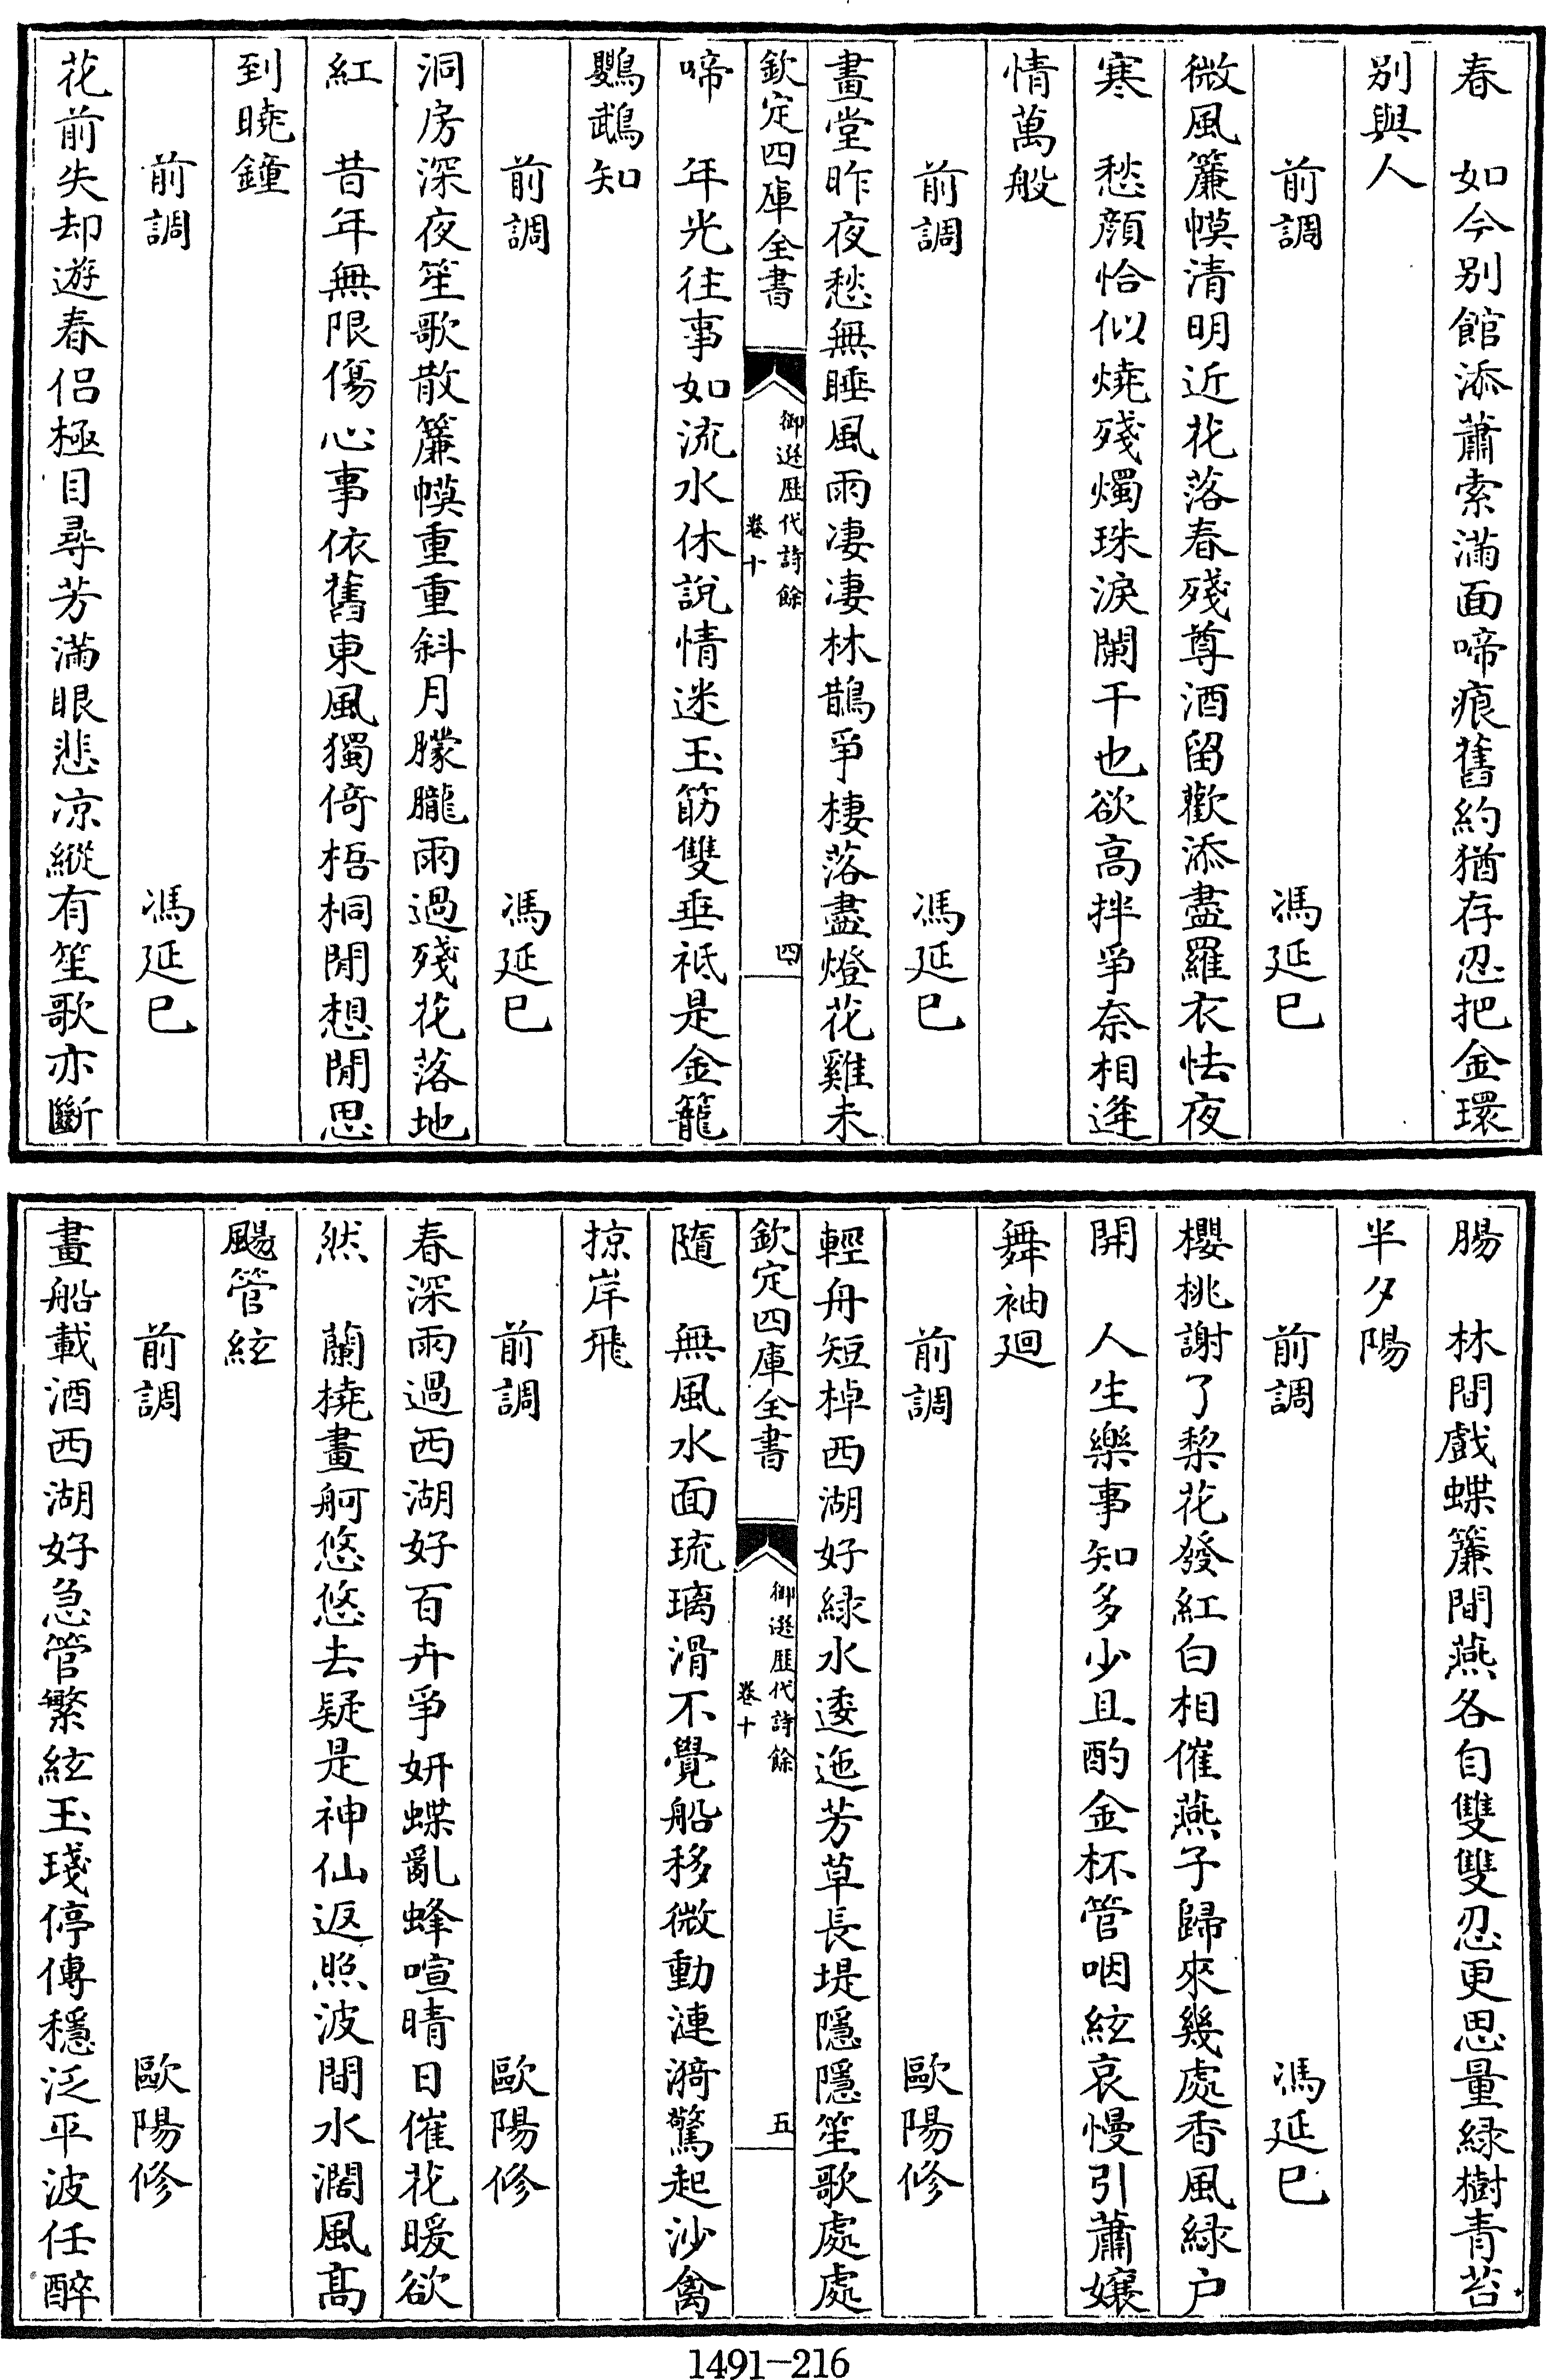 春　如今別館添蕭索滿面啼痕舊約猶存忍把金環
別與人
前調　馮延巳
微風簾幙清明近花落春殘尊酒留歡添盡羅衣怯夜
寒　愁顔恰似燒殘燭珠淚闌干也欲高拌爭奈相逢
情萬般
前調　馮延巳
畫堂昨夜愁無睡風雨凄凄林鵲爭棲落盡燈花雞未
欽定四庫全書　御選歷代詩餘　卷十　四
啼　年光往事如流水休說情迷玉筯雙垂祗是金籠
鸚鵡知
前調　馮延巳
洞房深夜笙歌散簾幙重重斜月朦朧雨過殘花落地
紅　昔年無限傷心事依舊東風獨倚梧桐閒想閒思
到曉鐘
前調　馮延巳
花前失却遊春侣極目尋芳滿眼悲凉縱有笙歌亦斷
腸　林間戲蝶簾間燕各自雙雙忍更思量緑樹青苔
半夕陽
前調　馮延巳
櫻桃謝了棃花發紅白相催燕子歸來幾處香風緑户
開　人生樂事知多少且酌金杯管咽絃哀慢引蕭孃
舞袖廻
前調　歐陽修
輕舟短棹西湖好緑水逶迤芳草長堤隱隱笙歌處處
欽定四庫全書　御選歷代詩餘　卷十　五
隨　無風水面琉璃滑不覺船移微動漣漪驚起沙禽
掠岸飛
前調　歐陽修
春深雨過西湖好百卉爭妍蝶亂蜂喧晴日催花暖欲
然　蘭橈畫舸悠悠去疑是神仙返照波間水濶風髙
颺管絃
前調　歐陽修
畫船載酒西湖好急管繁絃玉琖停傳穩泛平波任醉
1491-216